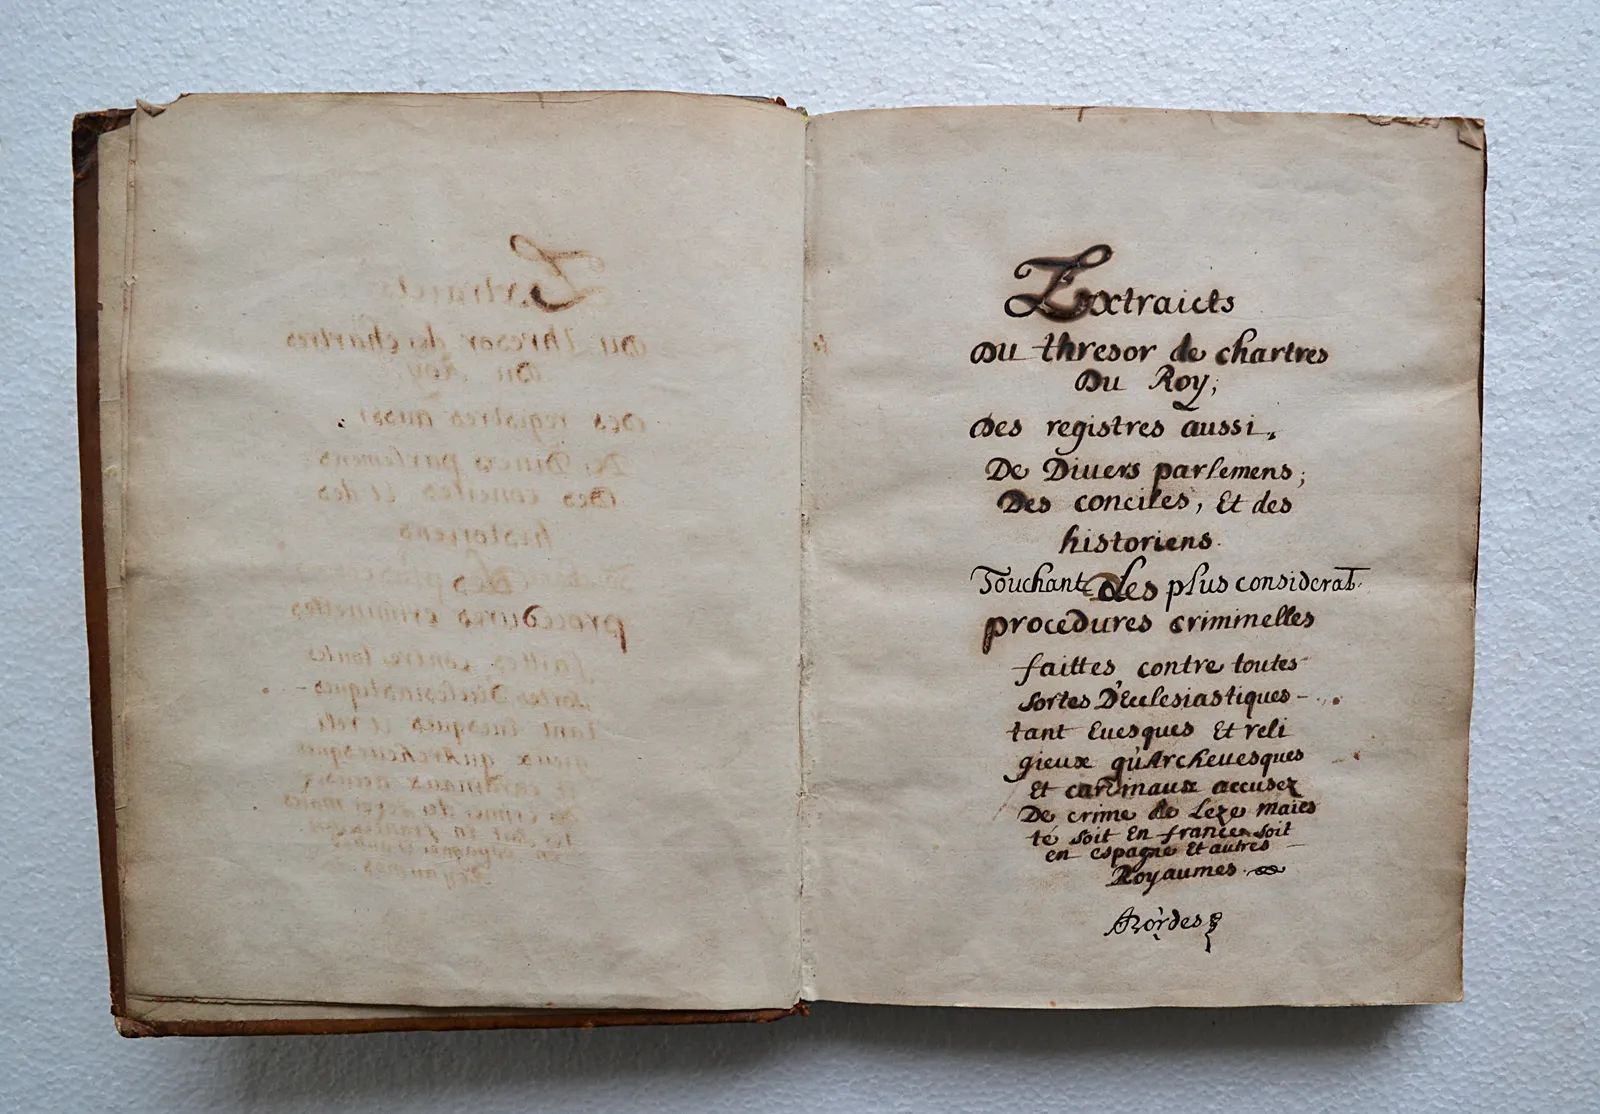 Extraicts
Du thresor de chartres
Du Roy,
Des registres aussi,
De Diuers parlemens;
Des conciles, Et des
historiens.
Touchant des plus considerat.
procedures criminelles
faittes contre toutes
sortes D'Ecclesiastiques -
tant Euesques Et reli
gieux qu'Archeuesques
Et cardinaux accusez
De crime de Leze maies
té soit En france soit
en espagne Et autres
Royaumes